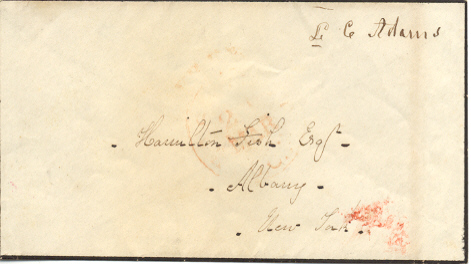 L C Adams
Hamilton Fish Esqr.
Albany
New York